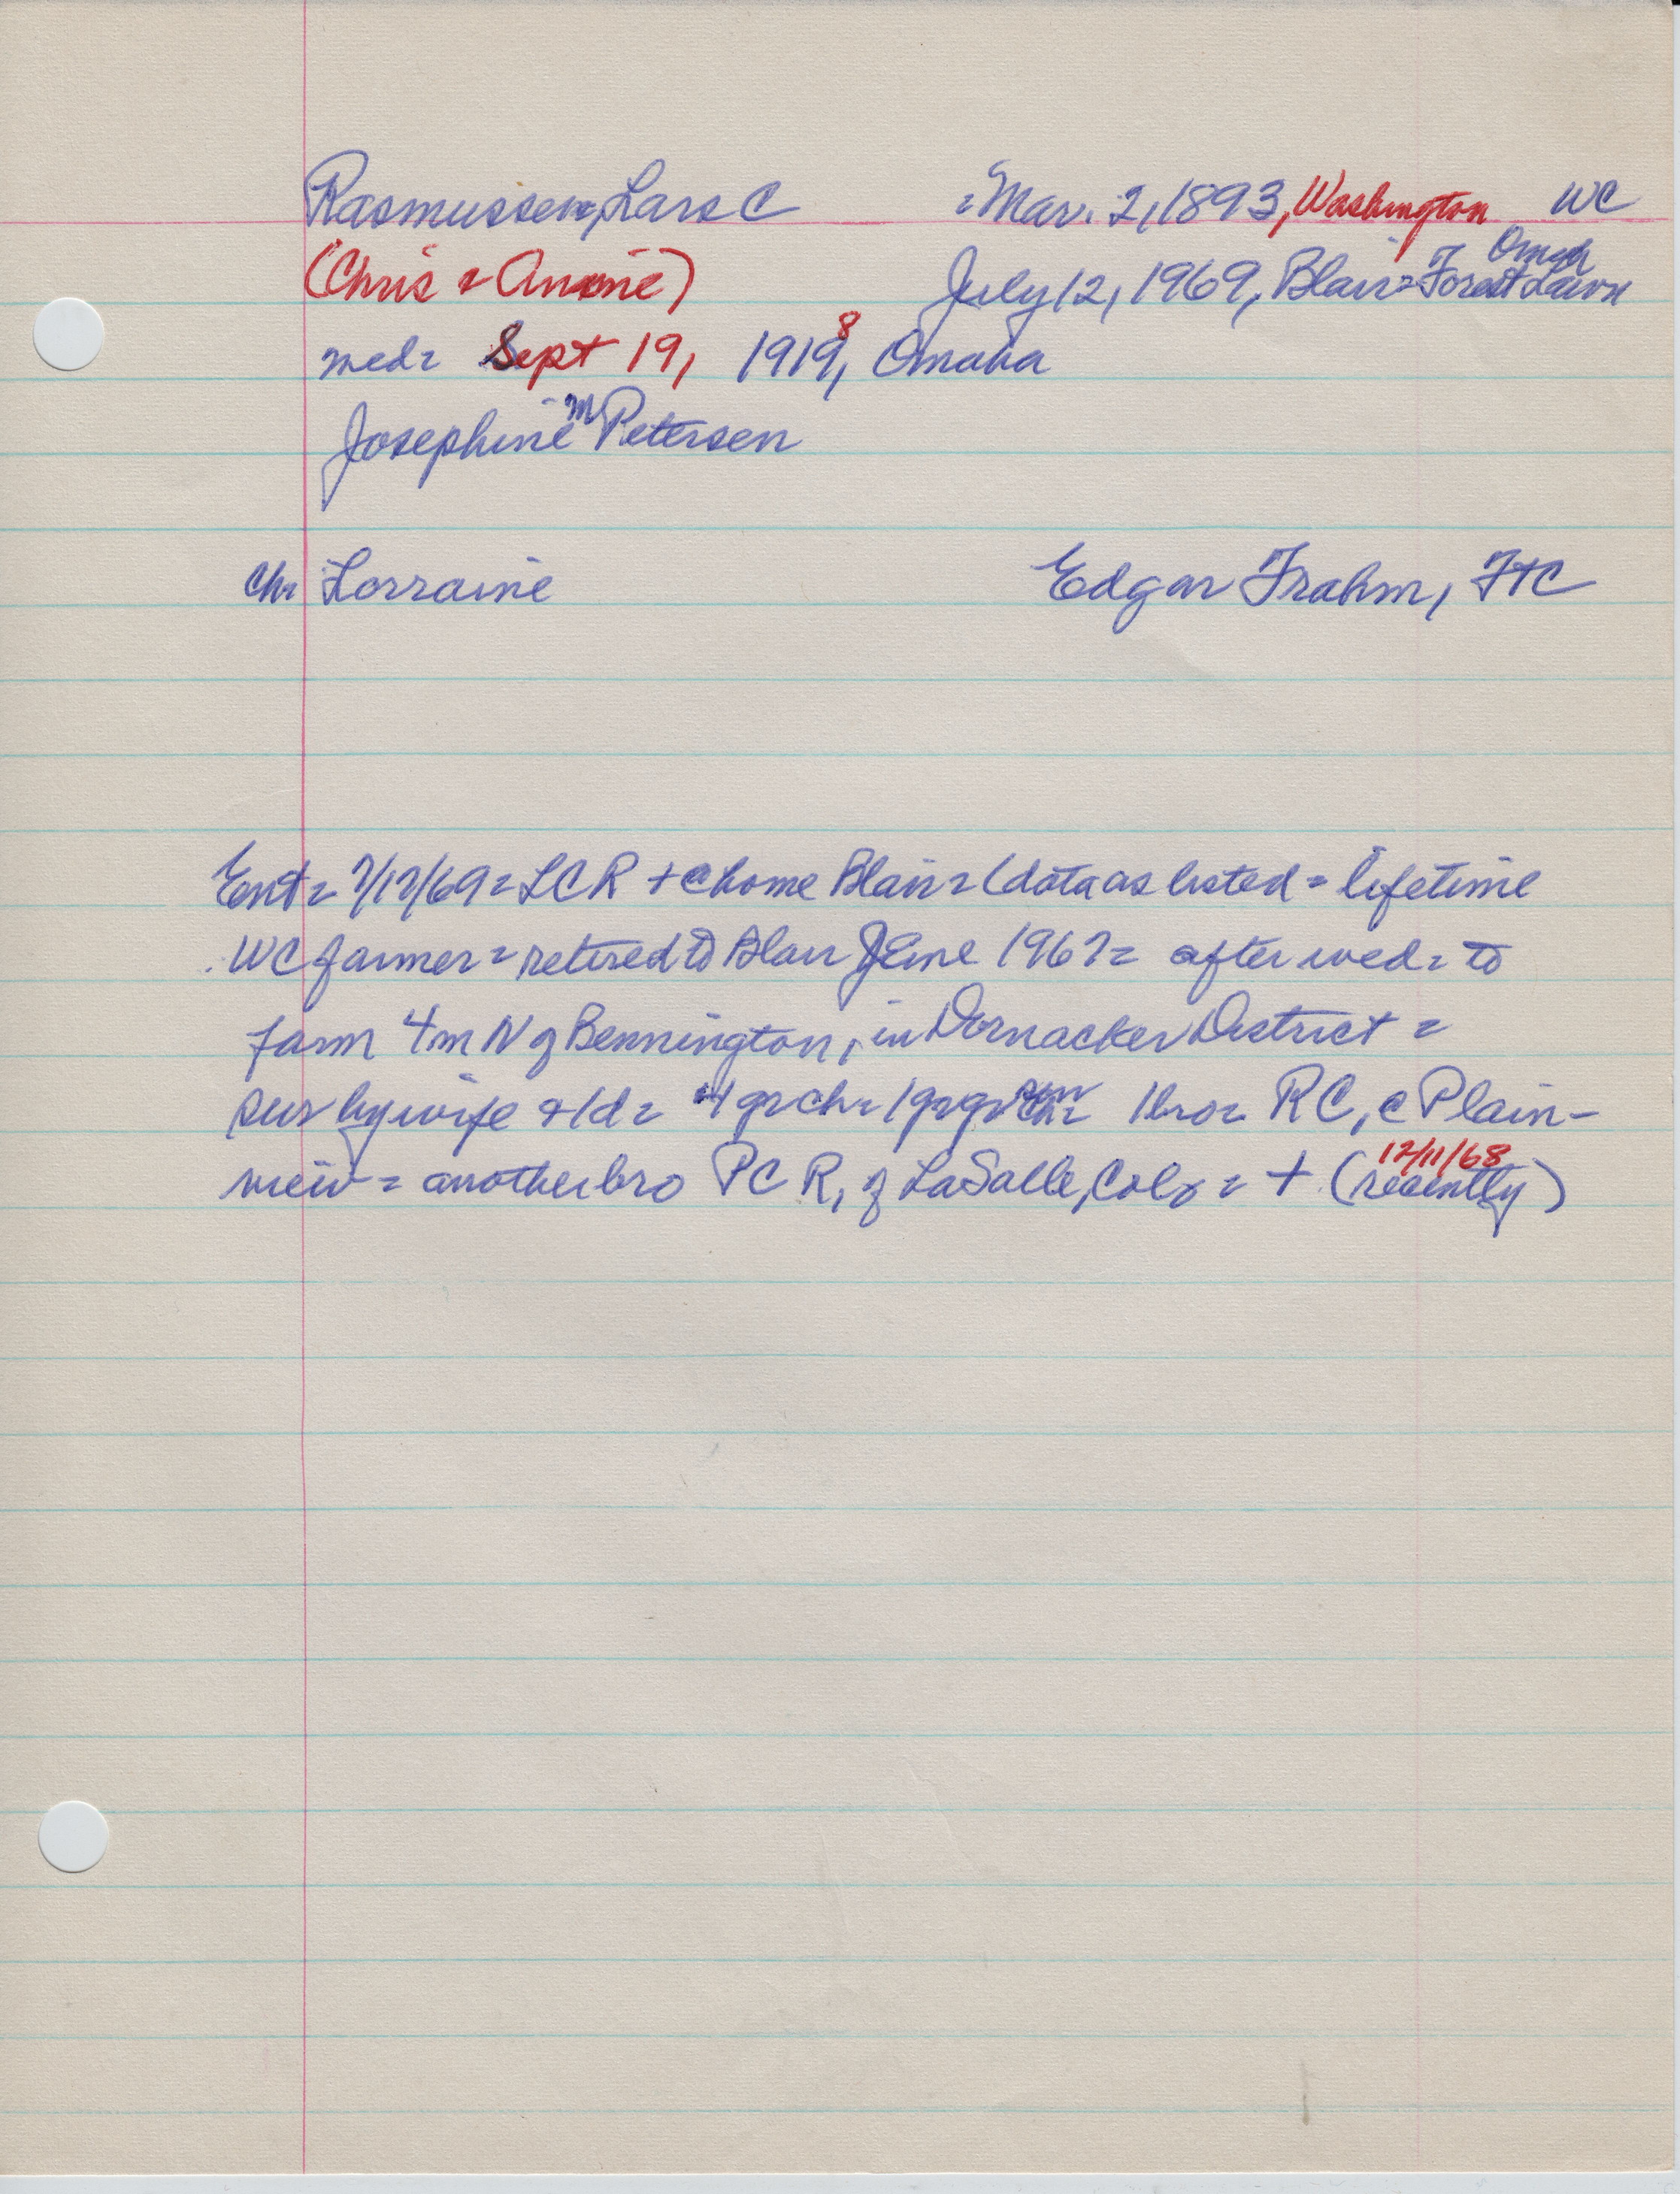 Rasmussen, Lars C = Mar. 2, 1893, Washington WC
(Chris & Annie) July 12, 1969, Blair = Forest Lawn Omah
wed = Sept 19, 1919, 8 Omaha
Josephine M Petersen
Ch = Lorraine Edgar Frahm, FTC
Ent = 7/17/69 = LCR + @ home Blair = (data as listed = lifetime
WC farmer = retired to Blair June 1967 = after wed = to
farm 4 m N of Bennington, in Dornacker District =
sur by wife & 1d = 4 grch = 1 grgr 1 bro = RC, @ Plain-
view = another bro PCR, of LaSalle, Colo = + (recently) 12/11/68